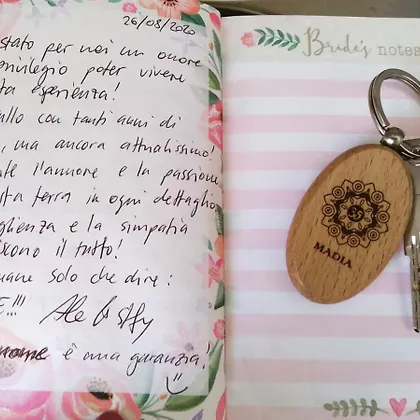 26/08/2020
stato per noi un onore
privilegio poter vivere
ta esperienza!
allo con tanti anni di
, ma ancora attualissimo!
te l'amore e la passione
sta terra in ogni dettaglio
glienza e la simpatia
scono il tutto!
mane solo che dire:
E!!!
è una garanzia!
Bride's notes
MADIA